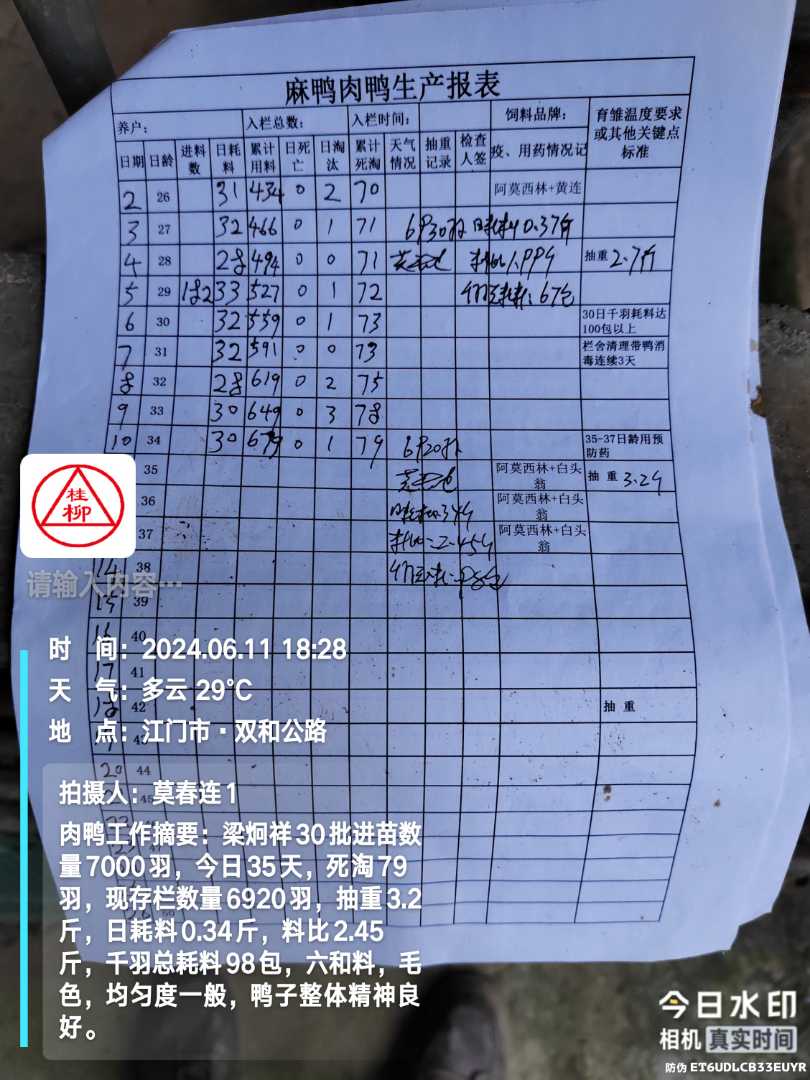 麻鸭肉鸭生产报表
养户: 入栏总数: 入栏时间: 饲料品牌: 育雏温度要求或其他关键点标准
日期 日龄 进料数 日耗料 累计用料 日死亡 日淘汰 累计死淘 天气情况 抽重记录 检查人签 疫、用药情况记
2 26 31 434 0 2 70 阿莫西林+黄连
3 27 32 466 0 1 71 6920羽 日耗料0.37斤
4 28 28 494 0 0 71 料比1.99斤 抽重 2.7斤
5 29 182 33 527 0 1 72 67包
6 30 32 559 0 1 73 30日千羽耗料达100包以上
7 31 32 591 0 0 73 栏舍清理带鸭消毒连续3天
8 32 28 619 0 2 75
9 33 30 649 0 3 78
10 34 30 679 0 1 79 6920羽 35-37日龄用预防药
35 阿莫西林+白头翁 抽 重 3.2斤
36 阿莫西林+白头翁
37 阿莫西林+白头翁
14 38
15 39
16 40
17 41
18 42 抽 重
20 44
桂柳
请输入内容…
时 间：2024.06.11 18:28
天 气：多云 29℃
地 点：江门市·双和公路
拍摄人：莫春连1
肉鸭工作摘要：梁炯祥30批进苗数
量7000羽，今日35天，死淘79
羽，现存栏数量6920羽，抽重3.2
斤，日耗料0.34斤，料比2.45
斤，千羽总耗料98包，六和料，毛
色，均匀度一般，鸭子整体精神良
好。
今日水印
相机 真实时间
防伪 ET6UDLCB33EUYR